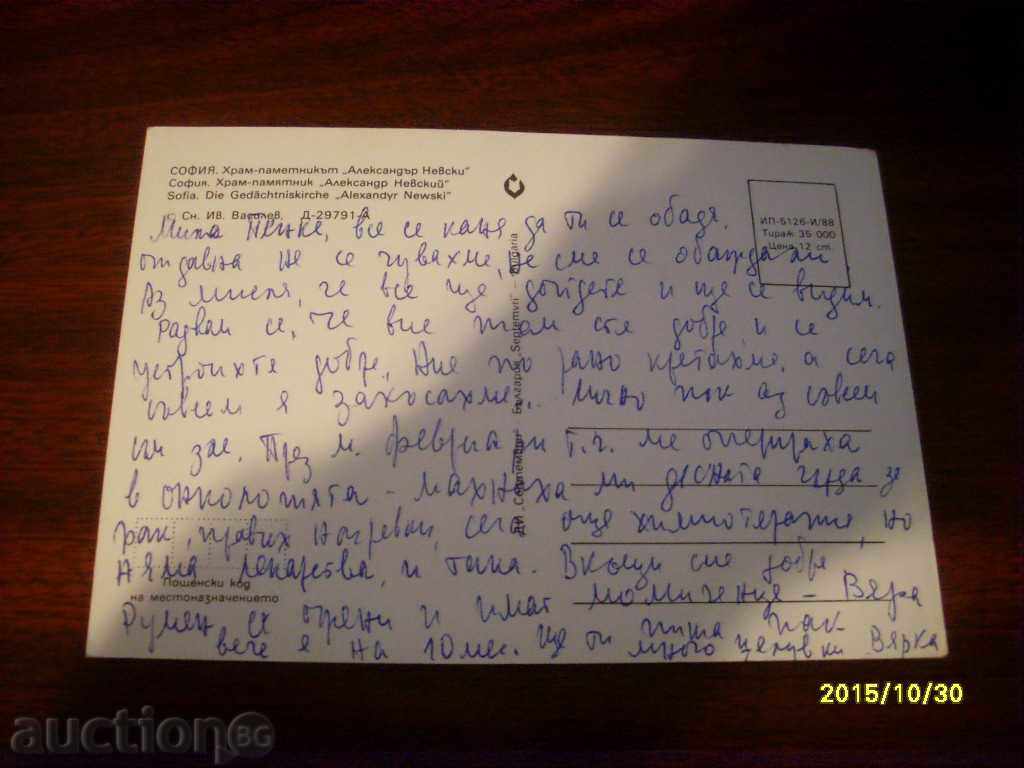 СОФИЯ. Храм-паметникът „Александър Невски"
София. Храм-памятник „Александр Невский"
Sofia. Die Gedächtniskirche „Alexandyr Newski"
Сн. Ив. Василев, Д-29791-А
ИП-5126-И/88
Тираж 35 000
Цена 12 ст.
ДИ „Септември" – България Septemvri – Bulgaria
Мила Пенке, все се каня да ти се обадя.
отдавна не се чувахме, не сме се обаждали
Аз мисля, че все ще дойдете и ще се видим.
Радвам се, че вие там сте добре и се
устроихте добре, Ние по рано кретахме, а сега
съвсем я закъсахме. Лично пък аз съвсем
зле. През м. февруари т.г. ме оперираха
в онкологията – махнаха ми дясната гърда за
рак, правих нагревки, сега още химиотерапия, но
няма лекарства, и така. Вкъщи сме добре
Румен се ожени и имат момиченце – Вяра
вече я на 10 мес. Ще ти пиша пак
много целувки Вярка
Пощенски код
на местоназначението
2015/10/30
auction BG